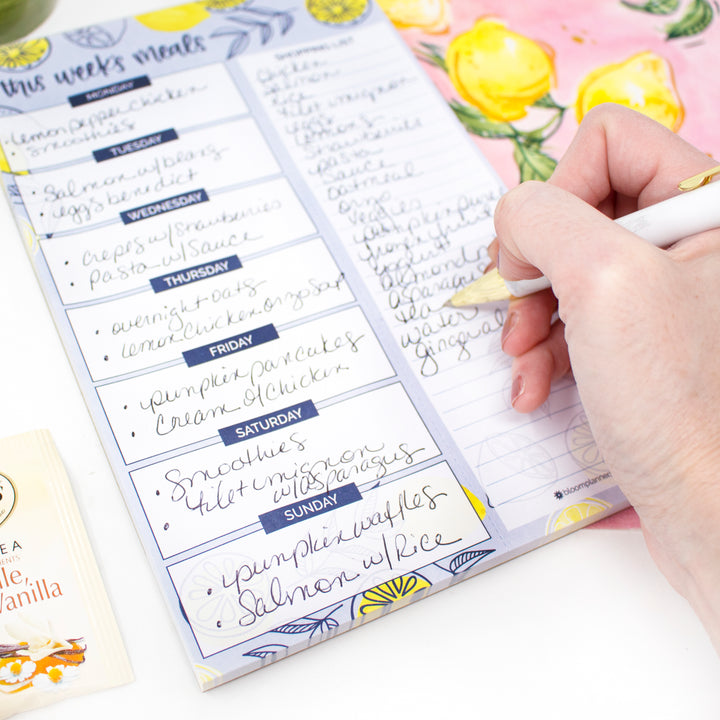 this week's meals
MONDAY
Lemon pepper chicken
Smoothies
TUESDAY
Salmon w/
eggs benedict
WEDNESDAY
crepes w/strawberries
pasta w/sauce
THURSDAY
overnight oats
Lemon Chicken orzo soap
FRIDAY
pumpkin pancakes
cream of chicken
SATURDAY
Smoothies
filet mignon
w/asparagus
SUNDAY
pumpkin waffles
Salmon w/Rice
SHOPPING LIST
chicken
salmon
rice
filet mignon
eggs
lemons
strawberries
pasta
sauce
oatmeal
orzo
veggies
pumpkin
frozen fruit
yogurt
almond
asparagus
tea
water
gingerale
bloomplanner
S
EA
ENTS
le,
Vanilla